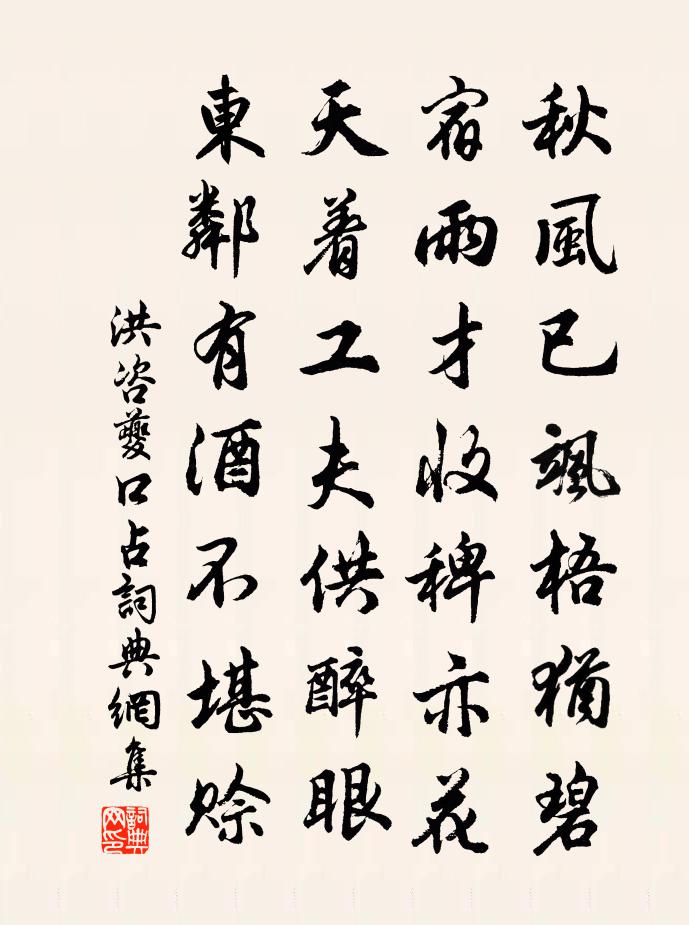 秋風已颯梧猶碧
宿雨才收稗亦花
天着工夫供醉眼
東鄰有酒不堪賒
洪咨夔口占詞典網集
詞典網印